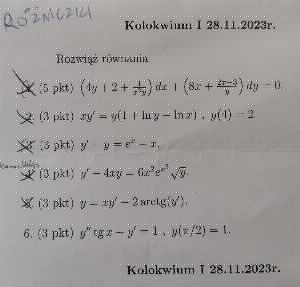 RÓŻNICZKI
Kolokwium I 28.11.2023r.
Rozwiąż równania
1. (5 pkt) (4y + 2 + 1/(x²y)) dx + (8x + (2x−3)/y) dy = 0
2. (3 pkt) xy' = y(1 + ln y − ln x) , y(4) = 2
3. (3 pkt) y' − y = eˣ − x,
4. (3 pkt) y' − 4xy = 6x²e^(x²)√y.
5. (3 pkt) y = xy' − 2 arctg(y').
6. (3 pkt) y'' tg x − y' = 1 , y(π/2) = 1.
Kolokwium I 28.11.2023r.